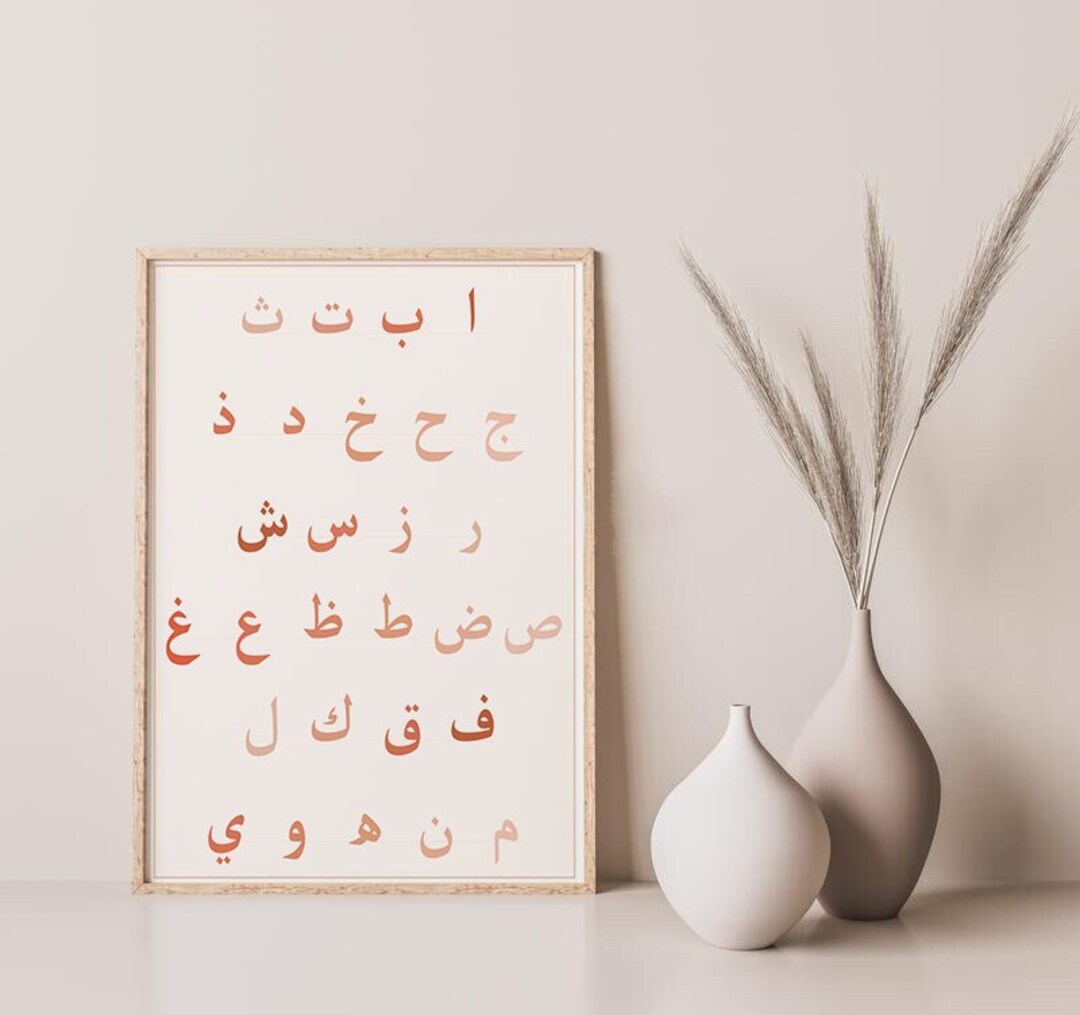 ا ب ت ث
ج ح خ د ذ
ر ز س ش
ص ض ط ظ ع غ
ف ق ك ل
م ن ه و ي